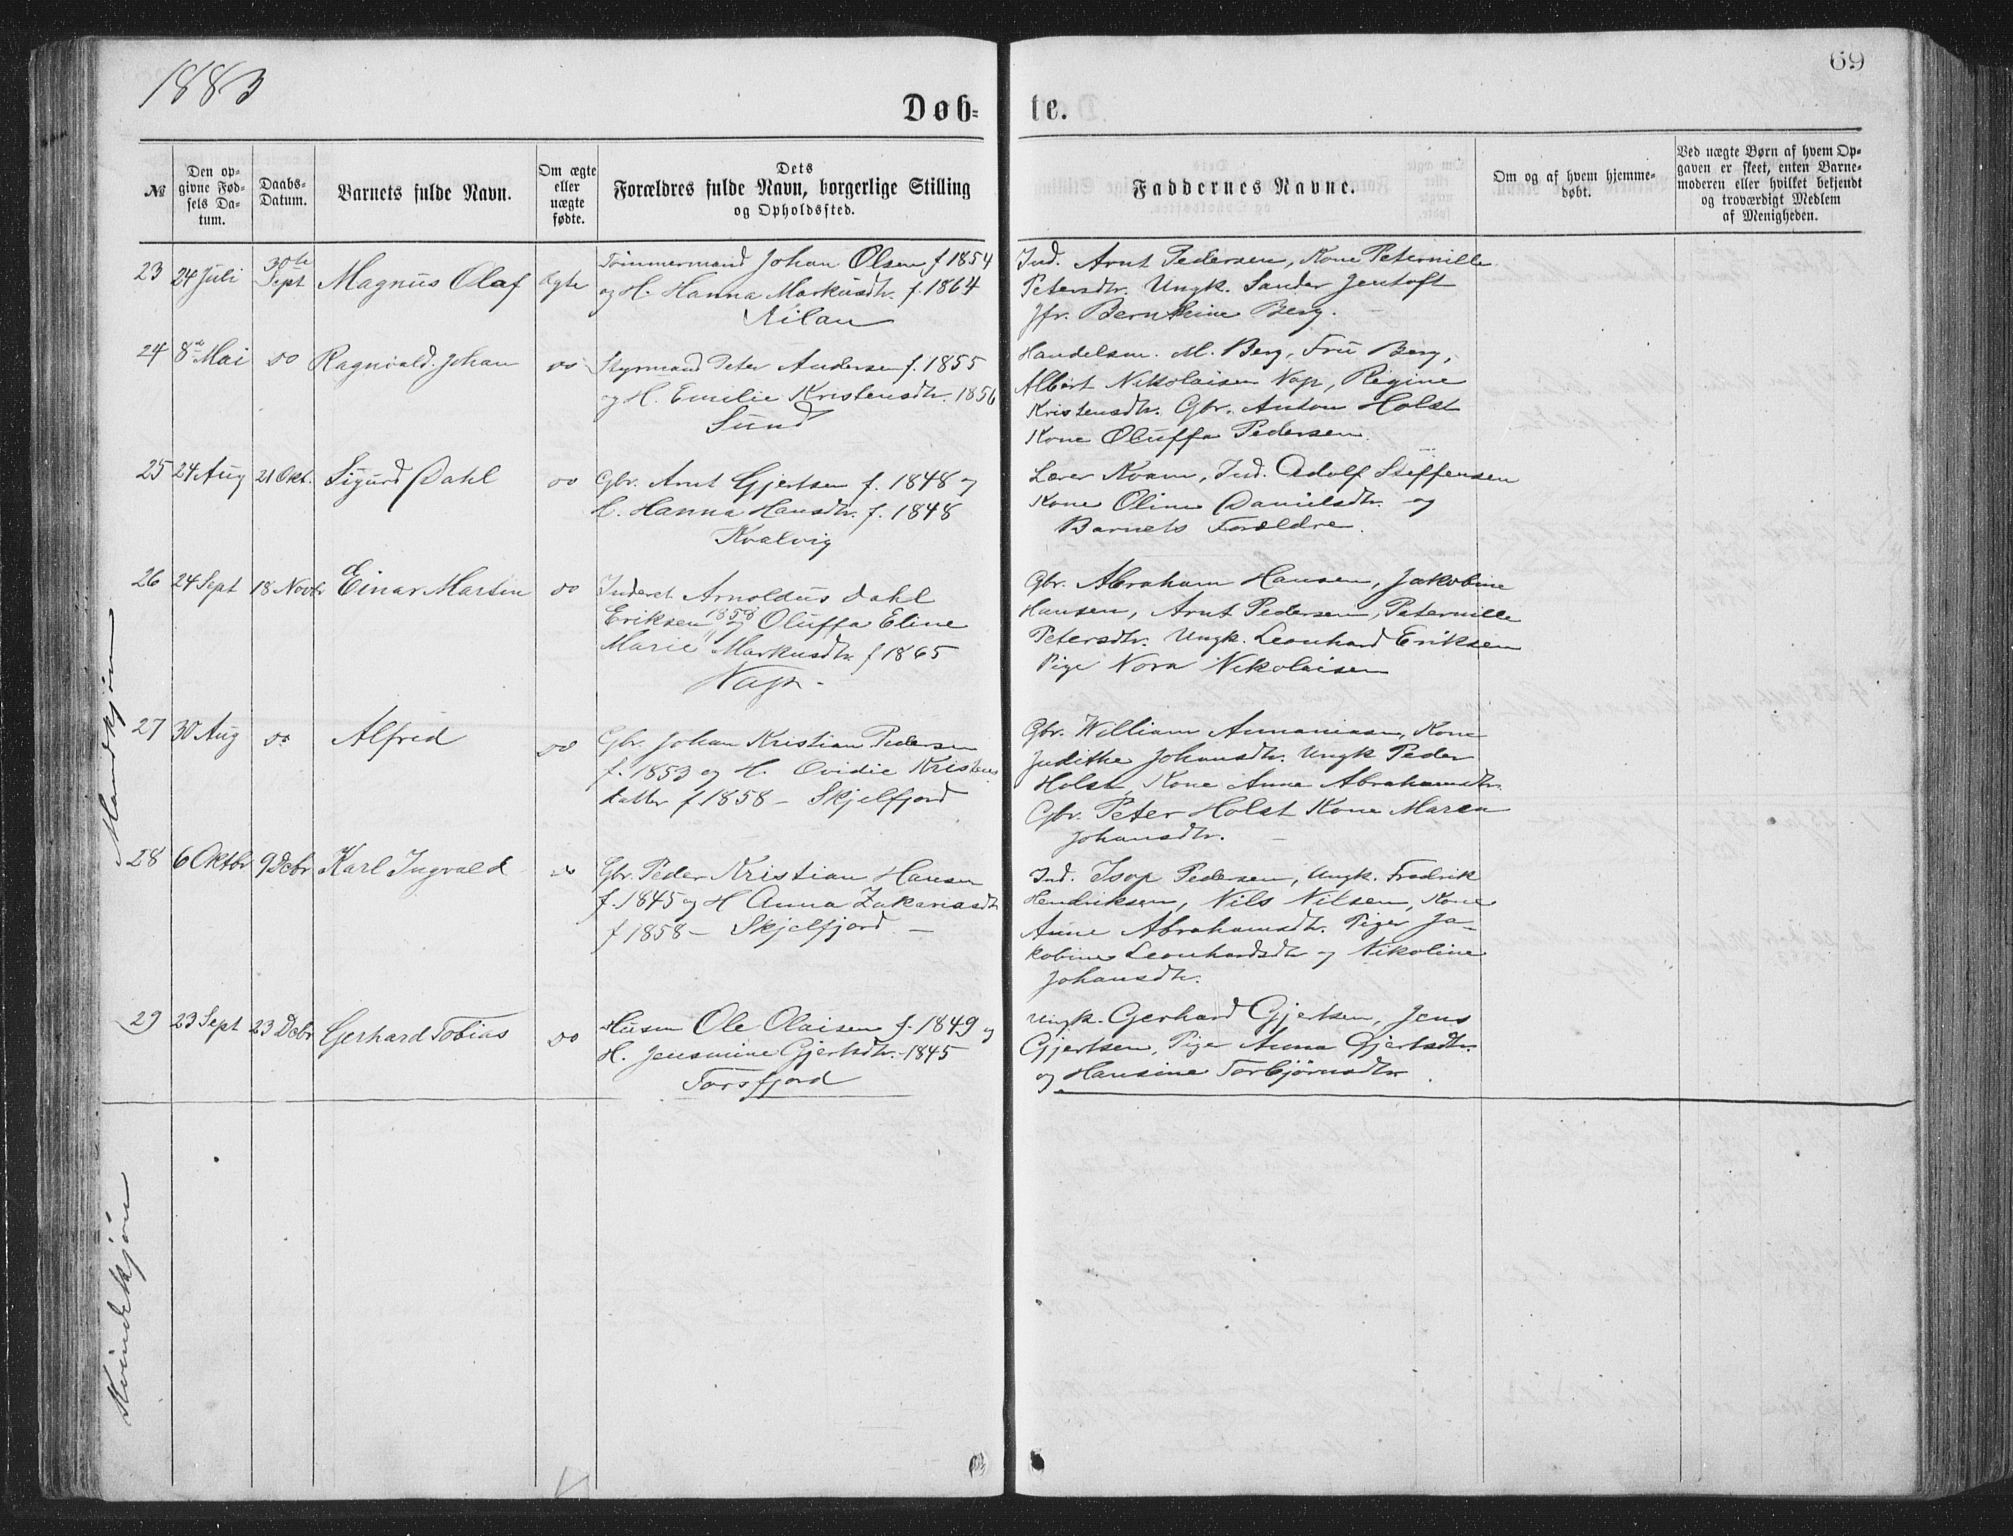 1883
69
Døb-
te.
№
Den op-
givne Fød-
sels Da-
tum.
Daabs-
Datum.
Barnets fulde Navn.
Om ægte
eller
uægte
fødte.
Dets
Forældres fulde Navn, borgerlige Stilling
og Opholdssted.
Faddernes Navne.
Om og af hvem hjemme-
døbt.
Ved uægte Børn af hvem Op-
gaven er skeet, enten Barne-
moderen eller hvilket bekjendt
og troværdigt Medlem
af Menigheden.
Mandkjøn
23 24 Juli 30te Sept Magnus Olaf Ægte
Tømmermand Johan Olsen f 1854
og H. Hanna Markusdtr. f. 1864
Ind. Arnt Pedersen, Kone Peternille
Petersdtr. Ungk. Sander Jentoft
Jfr. Berntine Berg.
24 8de Mai do Ragnvald Johan do
Styrmand Peter Andersen f. 1855
og H. Emilie Kristensdtr. 1856
Sund
Handelsm. M. Berg, Fru Berg,
Albert Nikolaisen Nap, Regine
Kristensdtr. Gbr. Anton Holst
Kone Oluffa Pedersen.
25 24 Aug 21 Okt. Sigurd Dahl do
Gbr. Arnt Gjertsen f. 1848 og
H. Hanna Hansdtr. f. 1848
Kvalvig
Lærer Kvam, Ind. Adolf Steffensen
Kone Oline Danielsdtr. og
Barnets Forældre.
26 24 Sept 18 Novbr Einar Martin do
Inderst Arnoldus Dahl
Eriksen 1853 og Oluffa Eline
Marie Markusdtr f 1865
Nap.
Gbr. Abraham Hansen, Jakobine
Hansen, Arnt Pedersen, Peternille
Petersdtr. Ungk. Leonhard Eriksen
Pige Nora Nikolaisen
27 30 Aug do Alfred do
Gbr. Johan Kristian Pedersen
f. 1853 og H. Ovidie Kristens
datter f 1858 - Skjelfjord
Gbr. William Annaniasen, Kone
Judithe Johansdtr. Ungk Peder
Holst, Kone Anne Abrahamsdtr.
Gbr. Peter Holst Kone Maren
Johansdtr. -
28 6 Oktbr 9 Decbr Karl Ingvald do
Gbr. Peder Kristian Hansen
f. 1845 og H Anna Zakariasdtr
f 1858 - Skjelfjord -
Ind. Isop Pedersen, Ungk. Fredrik
Hendriksen, Nils Nilsen, Kone
Anne Abrahamsdtr. Piger Ja-
kobine Leonhardsdtr og Nikoline
Johansdtr.
29 23 Sept 23 Decbr Gerhard Tobias do
Husm Ole Olaisen f. 1849 og
H. Jensmine Gjertsdtr. 1845
Torsfjord
Ungk. Gerhard Gjertsen, Jens
Gjertsen, Pige Anna Gjertsdtr.
og Hansine Torbjørnsdtr.
Kvindekjøn